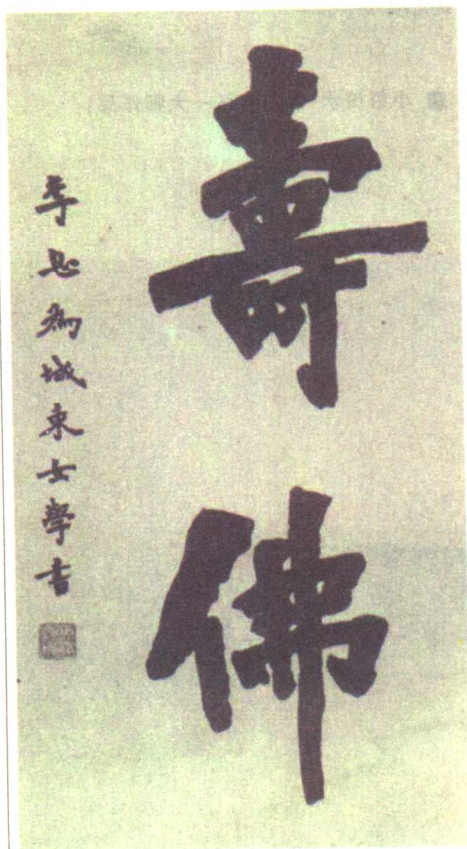 壽佛
李息為城東女學書